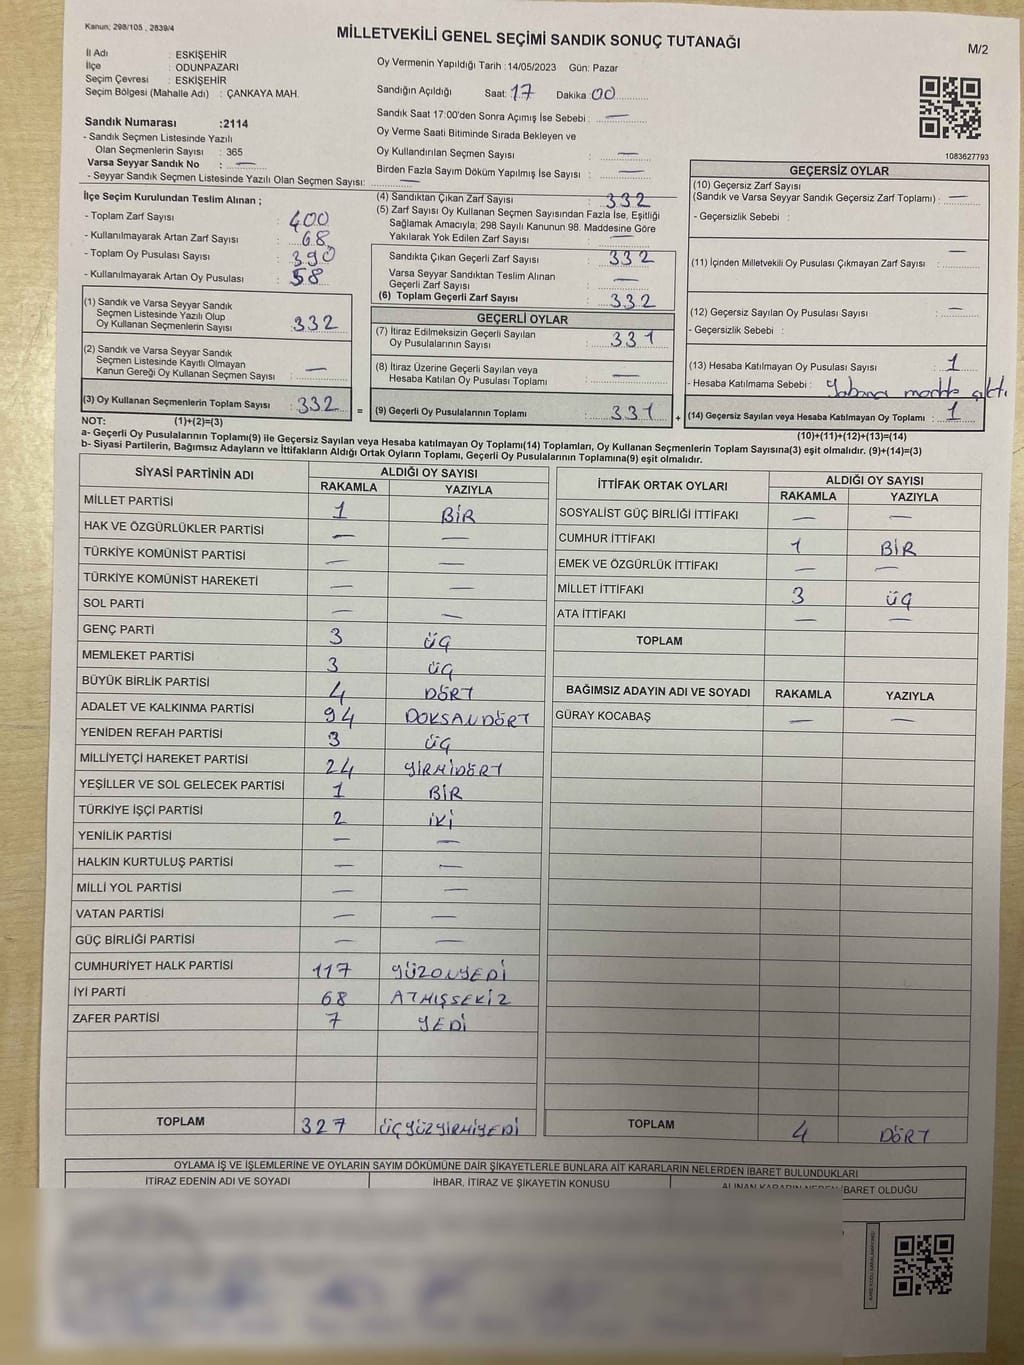 Kanun; 298/105 , 2839/4
MİLLETVEKİLİ GENEL SEÇİMİ SANDIK SONUÇ TUTANAĞI
M/2
İl Adı : ESKİŞEHİR
İlçe : ODUNPAZARI
Seçim Çevresi : ESKİŞEHİR
Seçim Bölgesi (Mahalle Adı) : ÇANKAYA MAH.
Sandık Numarası :2114
- Sandık Seçmen Listesinde Yazılı
Olan Seçmenlerin Sayısı : 365
Varsa Seyyar Sandık No : —
- Seyyar Sandık Seçmen Listesinde Yazılı Olan Seçmen Sayısı: —
Oy Vermenin Yapıldığı Tarih : 14/05/2023 Gün: Pazar
Sandığın Açıldığı Saat: 17 Dakika 00
Sandık Saat 17:00'den Sonra Açımış İse Sebebi : —
Oy Verme Saati Bitiminde Sırada Bekleyen ve
Oy Kullandırılan Seçmen Sayısı : —
Birden Fazla Sayım Döküm Yapılmış İse Sayısı : —
1083627793
İlçe Seçim Kurulundan Teslim Alınan ;
- Toplam Zarf Sayısı : 400
- Kullanılmayarak Artan Zarf Sayısı : 68
- Toplam Oy Pusulası Sayısı : 390
- Kullanılmayarak Artan Oy Pusulası : 58
(1) Sandık ve Varsa Seyyar Sandık
Seçmen Listesinde Yazılı Olup
Oy Kullanan Seçmenlerin Sayısı : 332
(2) Sandık ve Varsa Seyyar Sandık
Seçmen Listesinde Kayıtlı Olmayan
Kanun Gereği Oy Kullanan Seçmen Sayısı : —
(3) Oy Kullanan Seçmenlerin Toplam Sayısı : 332
(4) Sandıktan Çıkan Zarf Sayısı : 332
(5) Zarf Sayısı Oy Kullanan Seçmen Sayısından Fazla İse, Eşitliği
Sağlamak Amacıyla; 298 Sayılı Kanunun 98. Maddesine Göre
Yakılarak Yok Edilen Zarf Sayısı : —
Sandıkta Çıkan Geçerli Zarf Sayısı : 332
Varsa Seyyar Sandıktan Teslim Alınan
Geçerli Zarf Sayısı : —
(6) Toplam Geçerli Zarf Sayısı : 332
GEÇERLİ OYLAR
(7) İtiraz Edilmeksizin Geçerli Sayılan
Oy Pusulalarının Sayısı : 331
(8) İtiraz Üzerine Geçerli Sayılan veya
Hesaba Katılan Oy Pusulası Toplamı : —
= (9) Geçerli Oy Pusulalarının Toplamı : 331 +
GEÇERSİZ OYLAR
(10) Geçersiz Zarf Sayısı
(Sandık ve Varsa Seyyar Sandık Geçersiz Zarf Toplamı) : —
- Geçersizlik Sebebi :
(11) İçinden Milletvekili Oy Pusulası Çıkmayan Zarf Sayısı : —
(12) Geçersiz Sayılan Oy Pusulası Sayısı : —
- Geçersizlik Sebebi :
(13) Hesaba Katılmayan Oy Pusulası Sayısı : 1
- Hesaba Katılmama Sebebi : Yabancı madde çıktı.
(14) Geçersiz Sayılan veya Hesaba Katılmayan Oy Toplamı : 1
NOT: (1)+(2)=(3)
(10)+(11)+(12)+(13)=(14)
a- Geçerli Oy Pusulalarının Toplamı(9) ile Geçersiz Sayılan veya Hesaba katılmayan Oy Toplamı(14) Toplamları, Oy Kullanan Seçmenlerin Toplam Sayısına(3) eşit olmalıdır. (9)+(14)=(3)
b- Siyasi Partilerin, Bağımsız Adayların ve İttifakların Aldığı Ortak Oyların Toplamı, Geçerli Oy Pusulalarının Toplamına(9) eşit olmalıdır.
SİYASİ PARTİNİN ADI ALDIĞI OY SAYISI
RAKAMLA YAZIYLA
MİLLET PARTİSİ 1 BİR
HAK VE ÖZGÜRLÜKLER PARTİSİ — —
TÜRKİYE KOMÜNİST PARTİSİ — —
TÜRKİYE KOMÜNİST HAREKETİ — —
SOL PARTİ — —
GENÇ PARTİ 3 ÜÇ
MEMLEKET PARTİSİ 3 ÜÇ
BÜYÜK BİRLİK PARTİSİ 4 DÖRT
ADALET VE KALKINMA PARTİSİ 94 DOKSANDÖRT
YENİDEN REFAH PARTİSİ 3 ÜÇ
MİLLİYETÇİ HAREKET PARTİSİ 24 YİRMİDÖRT
YEŞİLLER VE SOL GELECEK PARTİSİ 1 BİR
TÜRKİYE İŞÇİ PARTİSİ 2 İKİ
YENİLİK PARTİSİ — —
HALKIN KURTULUŞ PARTİSİ — —
MİLLİ YOL PARTİSİ — —
VATAN PARTİSİ — —
GÜÇ BİRLİĞİ PARTİSİ — —
CUMHURİYET HALK PARTİSİ 117 YÜZONYEDİ
İYİ PARTİ 68 ATMIŞSEKİZ
ZAFER PARTİSİ 7 YEDİ
TOPLAM 327 ÜÇYÜZYİRMİYEDİ
İTTİFAK ORTAK OYLARI ALDIĞI OY SAYISI
RAKAMLA YAZIYLA
SOSYALİST GÜÇ BİRLİĞİ İTTİFAKI — —
CUMHUR İTTİFAKI 1 BİR
EMEK VE ÖZGÜRLÜK İTTİFAKI — —
MİLLET İTTİFAKI 3 ÜÇ
ATA İTTİFAKI — —
TOPLAM
BAĞIMSIZ ADAYIN ADI VE SOYADI RAKAMLA YAZIYLA
GÜRAY KOCABAŞ — —
TOPLAM 4 DÖRT
OYLAMA İŞ VE İŞLEMLERİNE VE OYLARIN SAYIM DÖKÜMÜNE DAİR ŞİKAYETLERLE BUNLARA AİT KARARLARIN NELERDEN İBARET BULUNDUKLARI
İTİRAZ EDENİN ADI VE SOYADI İHBAR, İTİRAZ VE ŞİKAYETİN KONUSU ALINAN KARARIN NEDEN İBARET OLDUĞU